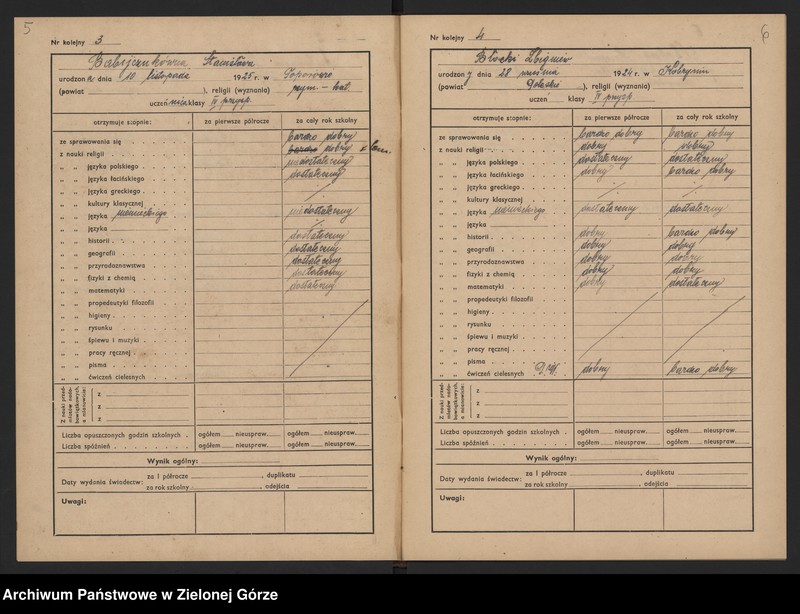 5
Nr kolejny 3
Stanisława
urodzona dnia 10 listopada 1925 r. w
(powiat ), religii (wyznania) rzym-kat
uczeń klasy II przysp
otrzymuje stopnie: za pierwsze półrocze za cały rok szkolny
ze sprawowania się bardzo dobry
z nauki religii bardzo dobry
„ „ języka polskiego niedostateczny
„ „ języka łacińskiego dostateczny
„ „ języka greckiego
„ „ kultury klasycznej
„ „ języka niemieckiego niedostateczny
„ „ języka
„ „ historii dostateczny
„ „ geografii dostateczny
„ „ przyrodoznawstwa dostateczny
„ „ fizyki z chemią dostateczny
„ „ matematyki dostateczny
„ „ propedeutyki filozofii
„ „ higieny
„ „ rysunku
„ „ śpiewu i muzyki
„ „ pracy ręcznej
„ „ pisma
„ „ ćwiczeń cielesnych
Z nauki przedmiotów nadobowiązkowych, a mianowicie:
z
z
z
Liczba opuszczonych godzin szkolnych ogółem nieuspraw. ogółem nieuspraw.
Liczba spóźnień ogółem nieuspraw. ogółem nieuspraw.
Wynik ogólny:
Daty wydania świadectw: za I półrocze , duplikatu
za rok szkolny , odejścia
Uwagi:
6
Nr kolejny 4
Błocki Zbigniew
urodzony dnia 28 września 1924 r. w Kobryniu
(powiat Poleski ), religii (wyznania)
uczeń klasy II przysp
otrzymuje stopnie: za pierwsze półrocze za cały rok szkolny
ze sprawowania się bardzo dobry bardzo dobry
z nauki religii dobry dobry
„ „ języka polskiego dostateczny dostateczny
„ „ języka łacińskiego dobry bardzo dobry
„ „ języka greckiego
„ „ kultury klasycznej
„ „ języka niemieckiego dostateczny dostateczny
„ „ języka
„ „ historii dobry bardzo dobry
„ „ geografii dobry dobry
„ „ przyrodoznawstwa dobry dobry
„ „ fizyki z chemią dobry dobry
„ „ matematyki dobry dostateczny
„ „ propedeutyki filozofii
„ „ higieny
„ „ rysunku
„ „ śpiewu i muzyki
„ „ pracy ręcznej
„ „ pisma
„ „ ćwiczeń cielesnych dobry bardzo dobry
Z nauki przedmiotów nadobowiązkowych, a mianowicie:
z
z
z
Liczba opuszczonych godzin szkolnych ogółem nieuspraw. ogółem nieuspraw.
Liczba spóźnień ogółem nieuspraw. ogółem nieuspraw.
Wynik ogólny:
Daty wydania świadectw: za I półrocze , duplikatu
za rok szkolny , odejścia
Uwagi:
Archiwum Państwowe w Zielonej Górze